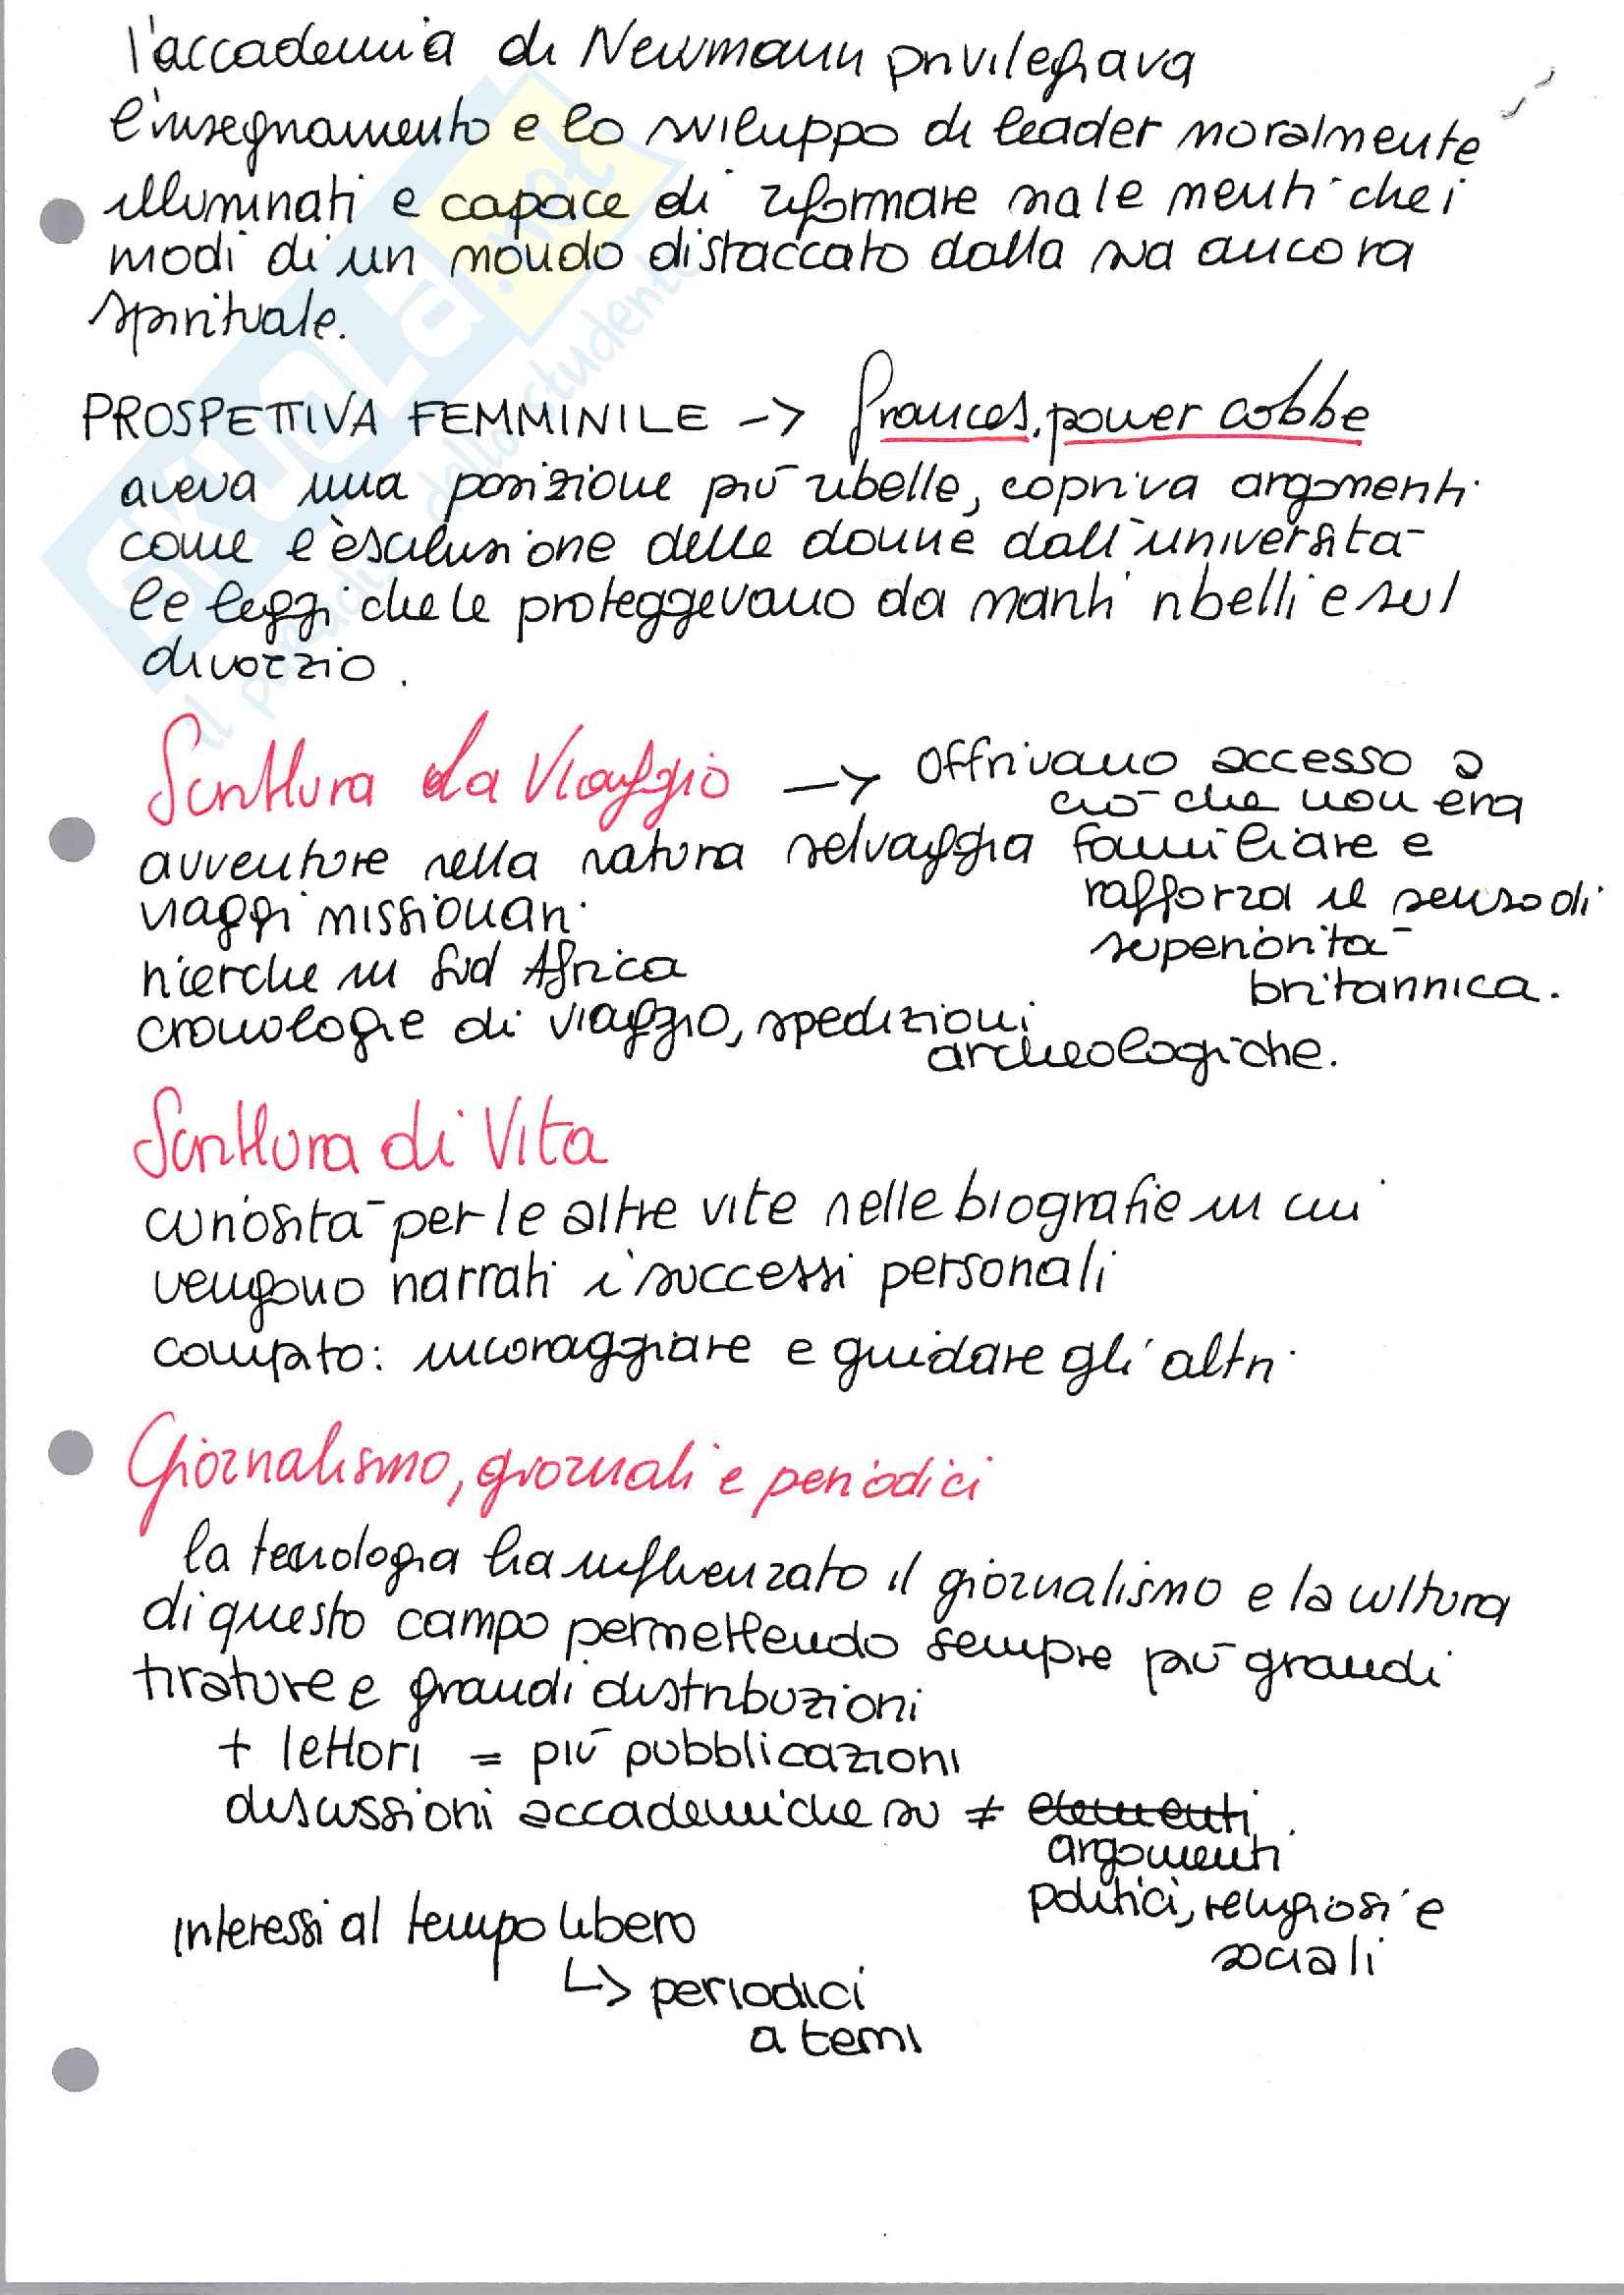 l'accademia di Newmann privilegiava
l'insegnamento e lo sviluppo di leader moralmente
illuminati e capace di riformare sia le menti che i
modi di un mondo distaccato dalla sua ancora
spirituale.
PROSPETTIVA FEMMINILE -> frances, power cobbe
aveva una posizione più ribelle, copriva argomenti
come l'esclusione delle donne dall'università
le leggi che le proteggevano da mariti ribelli e sul
divorzio.
Scrittura da Viaggio -> Offrivano accesso a
ciò che non era
avventure nella natura selvaggia familiare e
viaggi missionari rafforza il senso di
superiorità
ricerche in Sud Africa britannica.
cronologie di viaggio, spedizioni
archeologiche.
Scrittura di Vita
curiosità per le altre vite nelle biografie in cui
vengono narrati i successi personali
compito: incoraggiare e guidare gli altri
Giornalismo, giornali e periodici
la tecnologia ha influenzato il giornalismo e la cultura
di questo campo permettendo sempre più grandi
tirature e grandi distribuzioni
+ lettori = più pubblicazioni
discussioni accademiche su ≠ elementi
argomenti
politici, religiosi e
sociali
Interessi al tempo libero
↳ periodici
a temi
SKUOLA.net
il paradiso dello studente